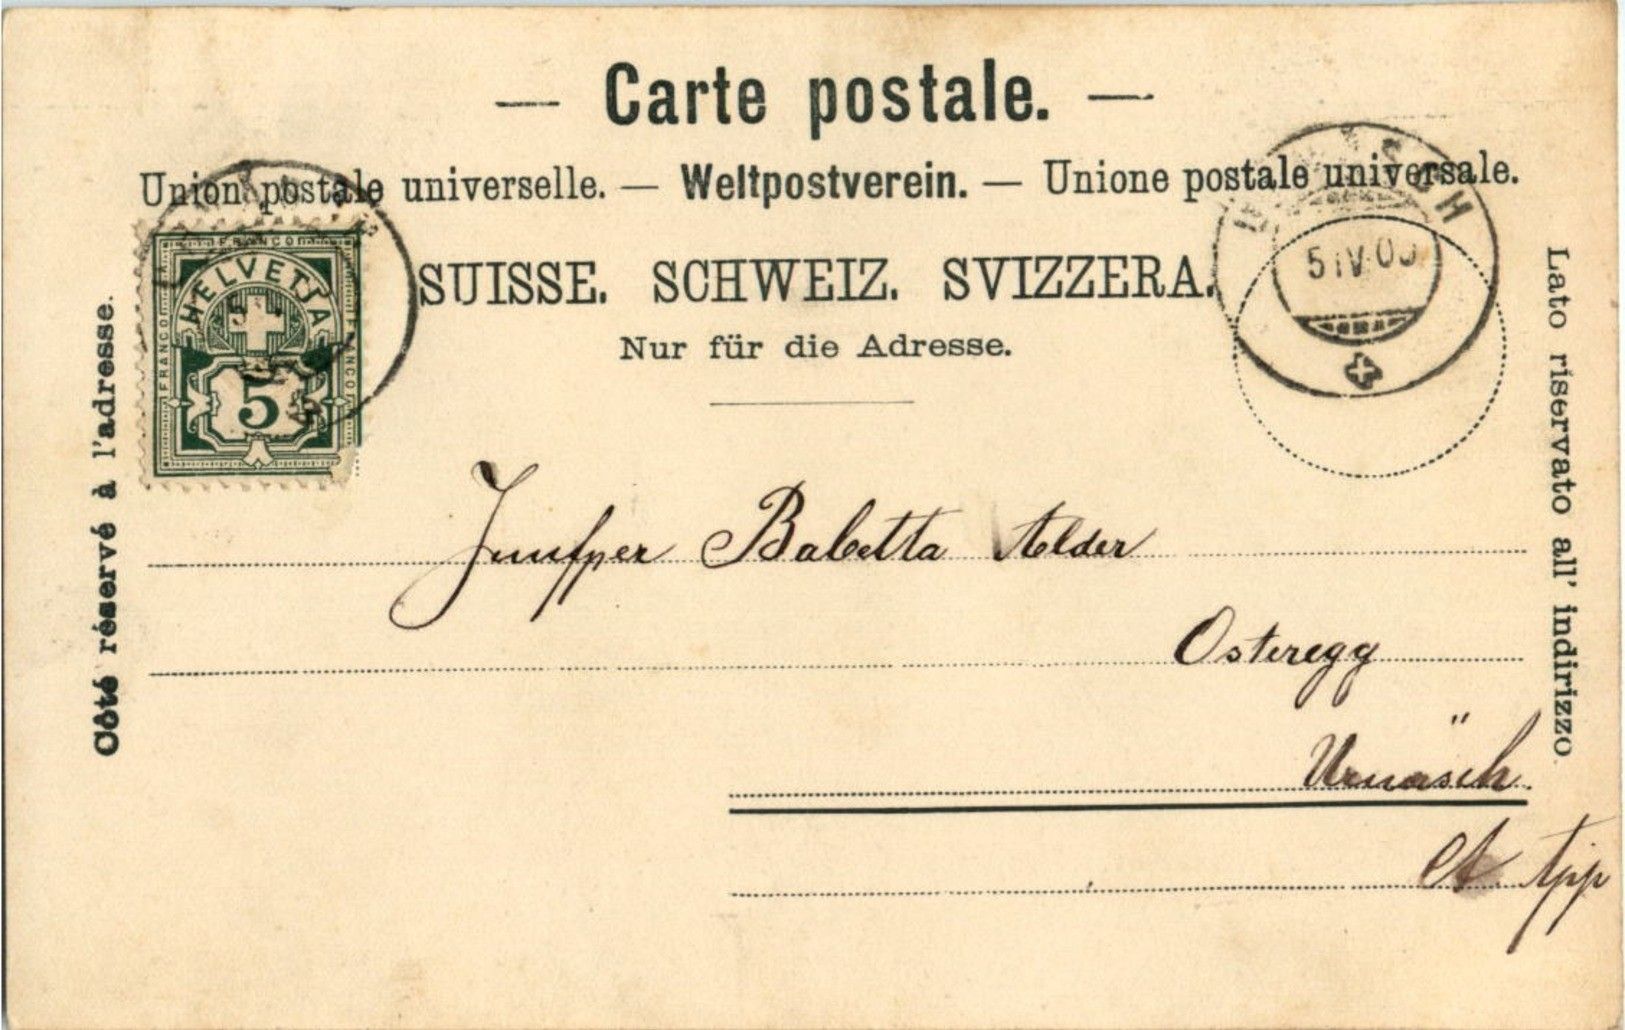 — Carte postale. —
Union postale universelle. — Weltpostverein. — Unione postale universale.
SUISSE. SCHWEIZ. SVIZZERA.
Nur für die Adresse.
Côté réservé à l'adresse.
Lato riservato all' indirizzo.
FRANCO
FRANCO
FRANCO
HELVETIA
5
5 IV 00
Jungfer Babetta Alder
Osteregg
Urnäsch.
Ct. App